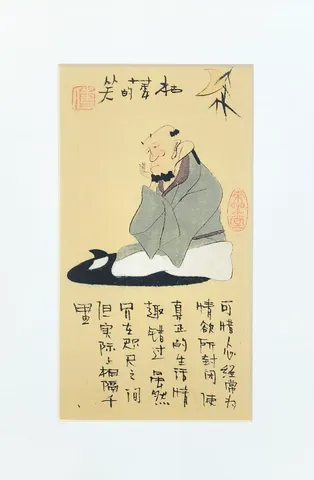 的笑
可惜心经常为
情欲所封闭 使
真正的生活情
趣错过 虽然
只在咫尺之间
但实际上相隔千
里